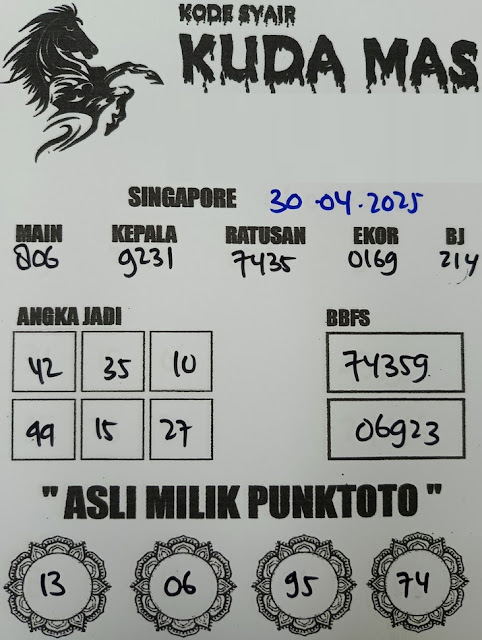 KODE SYAIR
KUDA MAS
SINGAPORE 30-04-2025
MAIN KEPALA RATUSAN EKOR BJ
806 9231 7435 0169 214
ANGKA JADI BBFS
42 35 10 74359
49 15 27 06923
" ASLI MILIK PUNKTOTO "
13 06 95 74